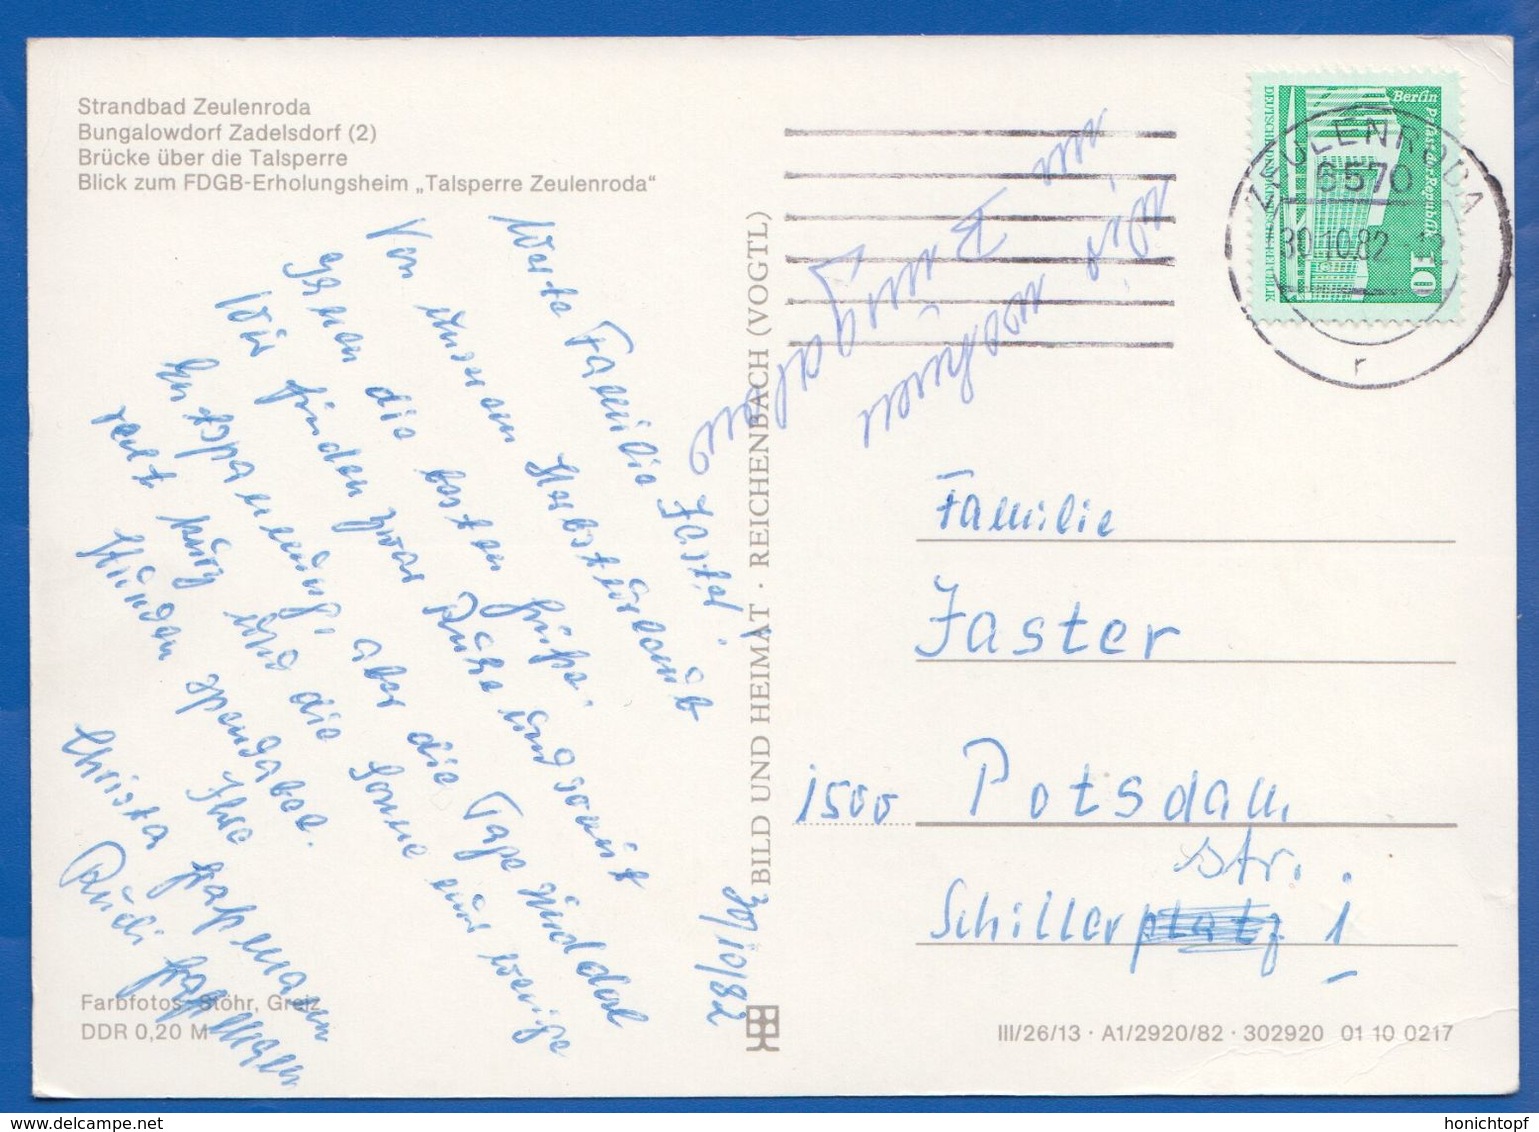 Strandbad Zeulenroda
Bungalowdorf Zadelsdorf (2)
Brücke über die Talsperre
Blick zum FDGB-Erholungsheim „Talsperre Zeulenroda“
Werte Familie Jaster!
Von unserem Herbsturlaub
Ihnen die besten Grüße.
Wir finden zwar Ruhe und somit
Entspannung, aber die Tage sind doch
recht kurz und die Sonne nur wenige
Stunden spendabel.
Ihre
Christa
Rudi
30/10/82
Wir wohnen
im Bungalow
BILD UND HEIMAT · REICHENBACH (VOGTL)
Berlin Palast der Republik
10
DEUTSCHE DEMOKRATISCHE REPUBLIK
ZEULENRODA
6570
30.10.82-12
r
Familie
Jaster
1500 Potsdam
Str.
Schillerplatz 1
Farbfotos: Stöhr, Greiz
DDR 0,20 M
III/26/13 · A1/2920/82 · 302920 01 10 0217
delcampe.net
honichtopf